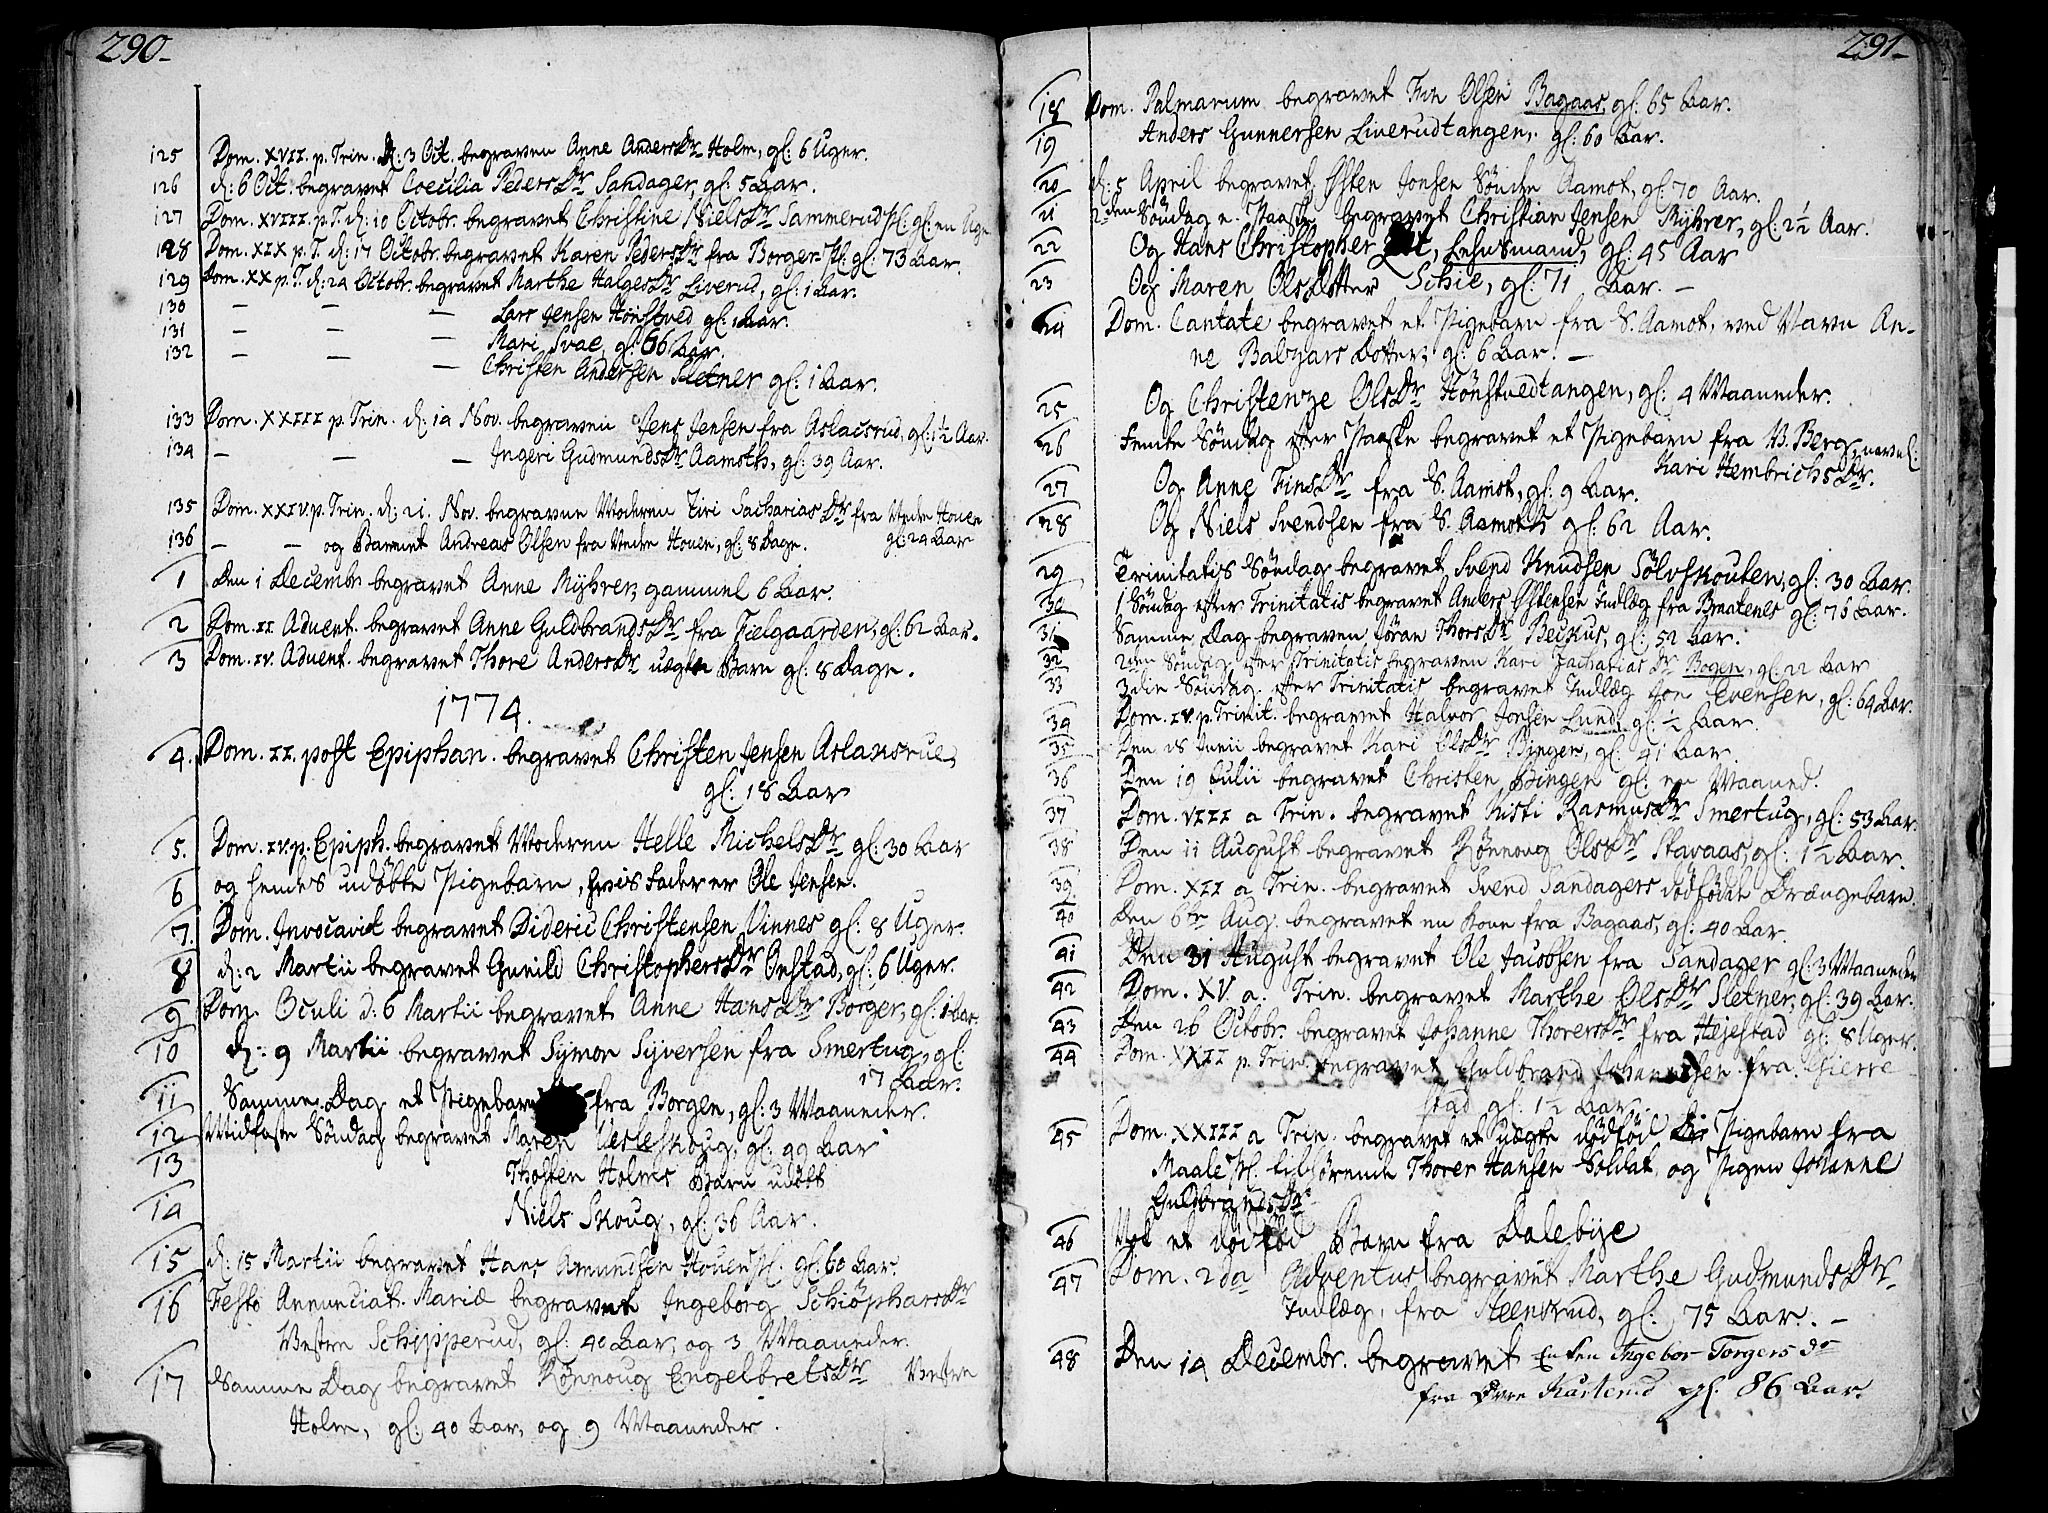 290
125 Dom. XVII. p. Trin. d: 3 Oct. begraven Anne AndersDr Holm, gl: 6 Uger.
126 d: 6 Oct. begravet Coecilia PedersDr Sandager, gl: 5 Aar.
127 Dom. XVIII. p. T. d: 10 Octobr. begravet Christine NielsDr Sammerud Pl. gl: en Uge
128 Dom. XIX p. T. d: 17 Octobr. begravet Karen PedersDr fra Borgen Pl: gl: 73 Aar.
129 Dom. XX p. T. d: 24 Octobr. begravet Marthe HalgesDr Liverud, gl: 1 Aar.
130 — — — Lars Jensen Hönstved gl: 1 Aar.
131 — — — Mari Svae, gl: 66 Aar.
132 — — — Christen Andersen Sletner gl: 1 Aar.
133 Dom. XXIII p. Trin. d: 14 Nov. begraven Jens Jensen fra Aslacsrud, gl: 1½ Aar.
134 — — — Ingeri GudmundsDr Aamoth, gl: 39 Aar.
135 Dom. XXIV. p. Trin. d: 21. Nov. begravne Moderen Siri SachariasDr fra Nedre Houen
gl: 24 Aar
136 — — og Barnet Andreas Olsen fra Nedre Houen, gl: 8 Dage.
1 Den 1 Decembr begravet Anne Myhrer, gammel 6 Aar.
2 Dom. II Advent. begravet Anne GuldbrandsDr fra Fielgaarden, gl: 62 Aar.
3 Dom. IV. Advent. begravet Thore AndersDr uægte Barn gl: 8 Dage.
1774.
4. Dom. II. post Epiphan. begravet Christen Jensen Aslansrue,
gl: 18 Aar
5. Dom. IV. p. Epiph. begravet Moderen Helle MichelsDr gl: 30 Aar
6 og hendes udöbte Pigebarn, hvis Fader er Ole Jensen.
7. Dom. Invocavit begravet Dideric Christensen Vinnes gl: 8 Uger.
8 d: 2 Martii begravet Gunild ChristophersDr Onstad, gl: 6 Uger.
9 Dom. Oculi d: 6 Martii begravet Anne HansDr Borger, gl: 1 Aar.
10 d: 9 Martii begravet Symon Syversen fra Smertug, gl:
17 Aar.
11 Samme Dag et Pigebarn fra Borgen, gl: 3 Maaneder.
12 Midfaste Söndag begravet Maren Vesleskoug, gl: 99 Aar
13 Thosten Holms Barn udöbt
14 Niels Skoug, gl: 36 Aar.
15 d: 15 Martii begravet Hans Amundsen Houen Pl. gl: 60 Aar.
16 Festo Annunciat. Mariæ begravet Ingeborg SchiöpharsDr
Vestre Schipperud, gl: 40 Aar, og 3 Maaneder.
17 Samme Dag begravet Rönnoug EngelbretsDr Vestre
Holm, gl: 40 Aar, og 9 Maaneder.
291
18 Dom. Palmarum begravet Fin Olsen Bagaas, gl: 65 Aar.
19 Anders Gunnersen Liverudtangen, gl: 60 Aar.
20 d: 5 April begravet Östen Jonsen Söndre Aamot, gl: 70 Aar.
21 2den Söndag e. Paaske begravet Christian Jensen Myhrer, gl: 2½ Aar.
22 Og Hans Christopher , Lehnsmand, gl: 45 Aar
23 Og Maren OlsDotter Schie, gl: 71 Aar. —
24 Dom. Cantate begravet et Pigebarn fra S. Aamot, ved Navn An-
ne Balvars Dotter, gl: 6 Aar. —
25 Og Christenze OlsDr Hönstvedtangen, gl: 4 Maaneder.
26 Femte Söndag efter Paaske begravet et Pigebarn fra N. Berg, navnl:
Kari HembrichsDr.
27 Og Anne FinsDr fra S. Aamot, gl: 9 Aar.
28 Og Niels Svendsen fra S. Aamot, gl: 62 Aar.
29 Trinitatis Söndag begravet Svend Knudsen Sölvskouten, gl: 30 Aar.
30 1 Söndag efter Trinitatis begravet Anders Östensen Indlæg fra Braatenes gl: 76 Aar.
31 Samme Dag begraven Jöran ThorsDr Beckus, gl: 52 Aar.
32 2den Söndag efter Trinitatis begraven Kari ZachariasDr Bogen, gl: 22 Aar
33 3die Söndag efter Trinitatis begravet Indlæg Jon Evensen, gl: 64 Aar.
34 Dom. IV. p. Trinit. begravet Halvor Jonsen Lund, gl: ½ Aar
35 Den 28 Junii begravet Kari OlsDr Bingen, gl: 41 Aar.
36 Den 19 Julii begravet Christen Bingen gl: en Maaned.
37 Dom. VIII a Trin. begravet Kisti RasmusDr Smertug, gl: 53 Aar.
38 Den 11 August begravet Rönnoug OlsDr Stavaas, gl: 1½ Aar.
39 Dom. XII a Trin. begravet Svend Sandagers dödfödte Drængebarn.
40 Den 6te Aug. begravet en Kone fra Bagaas, gl: 40 Aar.
41 Den 31 August begravet Ole Jacobsen fra Sandager gl: 3 Maaneder
42 Dom. XV. a. Trin. begravet Marthe OlsDr Sletner, gl: 39 Aar.
43 Den 26 Octobr. begravet Johanne ThorersDr fra Hejestad gl: 8 Uger.
44 Dom. XXII p. Trin. begravet Guldbrand Johannesen fra Gierre
stad gl: 1½ Aar.
45 Dom. XXIII a Trin. begravet et uægte dödföd Pigebarn fra
Maale Pl. tilhörende Thorer Hansen Soldat, og Pigen Johanne
GuldbrandsDr
46 Nok et dödföd Barn fra Dalebye
47 Dom. 2da Adventus begravet Marthe GudmundsDr
Indlæg, fra Steensrud, gl: 75 Aar. —
48 Den 14 Decembr. begravet Enken Ingebor Torgers do
fra Øvre Karlsrud gl. 86 Aar.